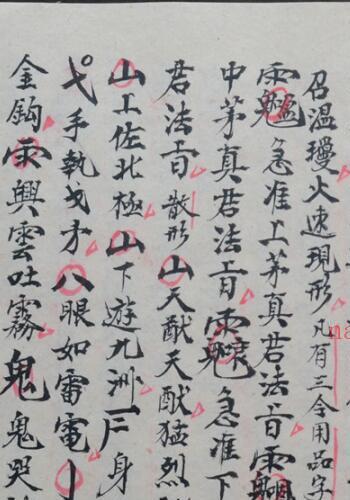 召溫火速現形凡有三令用品字
急准上茅真君法旨
中茅真君法旨急准下
君法旨散形山天猷天猷猛烈
山上佐北極山下遊九洲身
弋手執戈矛八眼如雷電
金鈎雨興雲吐霧鬼鬼哭